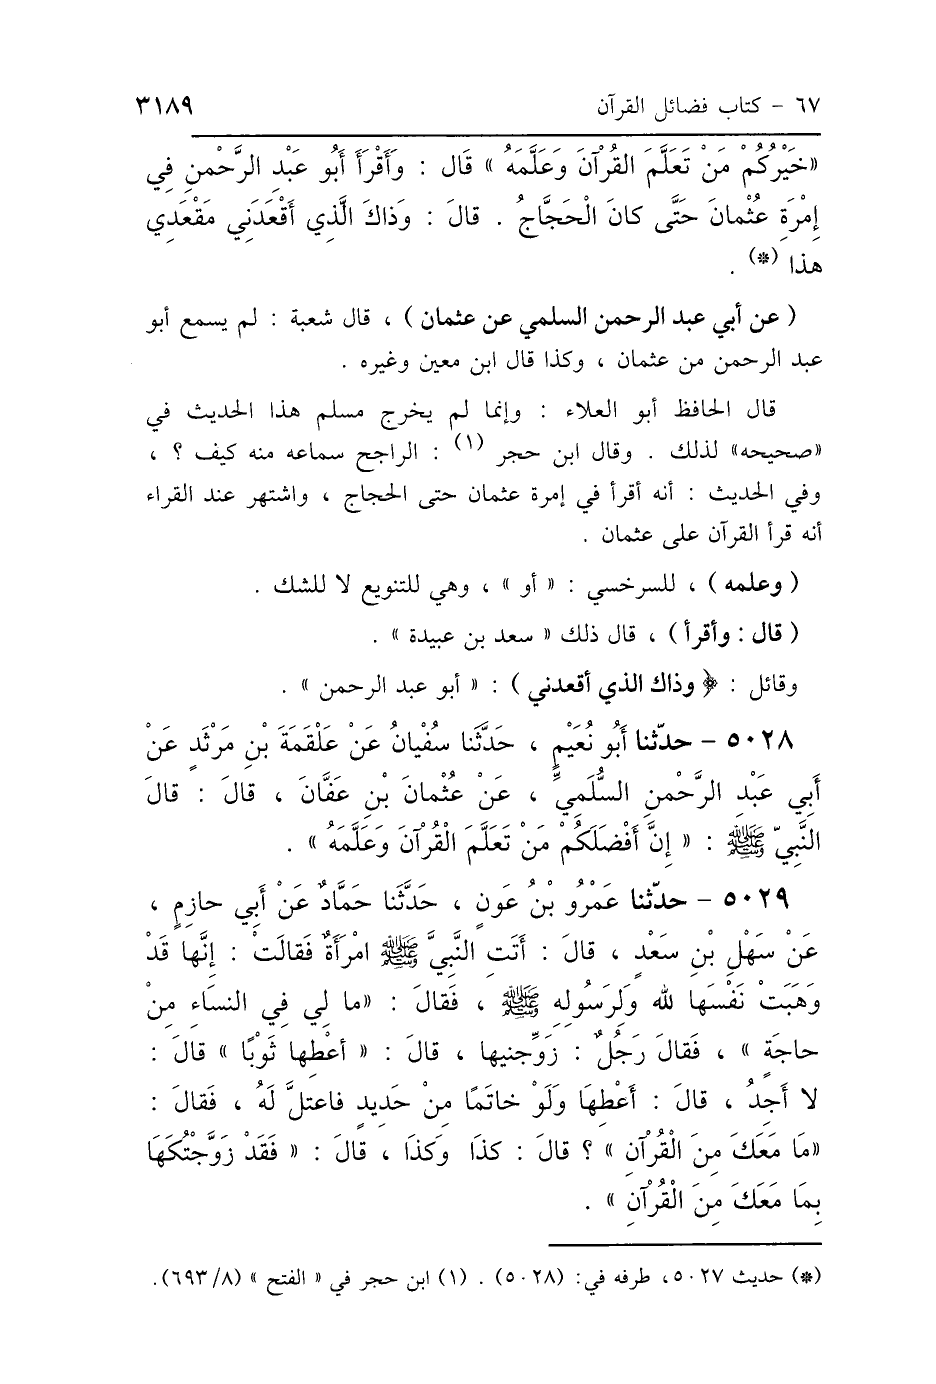 ٦٧ - كتاب فضائل القرآن ٣١٨٩
«خَيْرُكُمْ مَنْ تَعَلَّمَ القُرْآنَ وَعَلَّمَهُ» قَال : وَأَقْرَأَ أَبُو عَبْدِ الرَّحْمنِ فِي
إِمْرَةِ عُثْمانَ حَتَّى كانَ الْحَجَّاجُ . قالَ : وَذاكَ الَّذِي أَقْعَدَنِي مَقْعَدِي
هذا (*) .
( عن أبي عبد الرحمن السلمي عن عثمان ) ، قال شعبة : لم يسمع أبو
عبد الرحمن من عثمان ، وكذا قال ابن معين وغيره .
قال الحافظ أبو العلاء : وإنما لم يخرج مسلم هذا الحديث في
«صحيحه» لذلك . وقال ابن حجر (١) : الراجح سماعه منه كيف ؟ ،
وفي الحديث : أنه أقرأ في إمرة عثمان حتى الحجاج ، واشتهر عند القراء
أنه قرأ القرآن على عثمان .
( وعلمه ) ، للسرخسي : « أو » ، وهي للتنويع لا للشك .
( قال : وأقرأ ) ، قال ذلك « سعد بن عبيدة » .
وقائل : ﴿ وذاك الذي أقعدني ) : « أبو عبد الرحمن » .
٥٠٢٨ - حدّثنا أَبُو نُعَيْمٍ ، حَدَّثَنا سُفْيانُ عَنْ عَلْقَمَةَ بْنِ مَرْثَدٍ عَنْ
أَبِي عَبْدِ الرَّحْمنِ السُّلَمِيِّ ، عَنْ عُثْمانَ بْنِ عَفَّانَ ، قالَ : قالَ
النَّبِيّ ﷺ : « إِنَّ أَفْضَلَكُمْ مَنْ تَعَلَّمَ الْقُرْآنَ وَعَلَّمَهُ » .
٥٠٢٩ - حدّثنا عَمْرُو بْنُ عَونٍ ، حَدَّثَنا حَمَّادٌ عَنْ أَبِي حازِمٍ ،
عَنْ سَهْلِ بْنِ سَعْدٍ ، قالَ : أَتَتِ النَّبِيَّ ﷺ امْرَأَةٌ فَقالَتْ : إِنَّها قَدْ
وَهَبَتْ نَفْسَها لله وَلِرَسُولِهِ ﷺ ، فَقالَ : «ما لِي فِي النسَاءِ مِنْ
حاجَةٍ » ، فَقالَ رَجُلٌ : زَوِّجنِيها ، قالَ : « أعْطِها ثَوْبًا » قالَ :
لا أَجِدُ ، قالَ : أَعْطِهَا وَلَوْ خاتَمًا مِنْ حَدِيدٍ فاعتلَّ لَهُ ، فَقالَ :
«مَا مَعَكَ مِنَ الْقُرْآنِ » ؟ قالَ : كذَا وَكَذَا ، قالَ : « فَقَدْ زَوَّجْتُكَهَا
بِمَا مَعَكَ مِنَ الْقُرْآنِ » .
(*) حديث ٥٠٢٧، طرفه في: (٥٠٢٨) . (١) ابن حجر في « الفتح » (٨/ ٦٩٣).